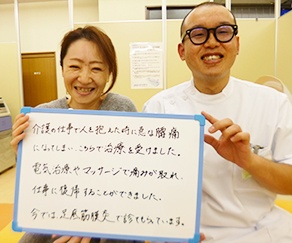 介護の仕事で人を抱えた時に急な腰痛
になってしまい、こちらで治療を受けました。
電気治療やマッサージで痛みが取れ、
仕事に復帰することができました。
今では、足底筋膜炎で診てもらっています。